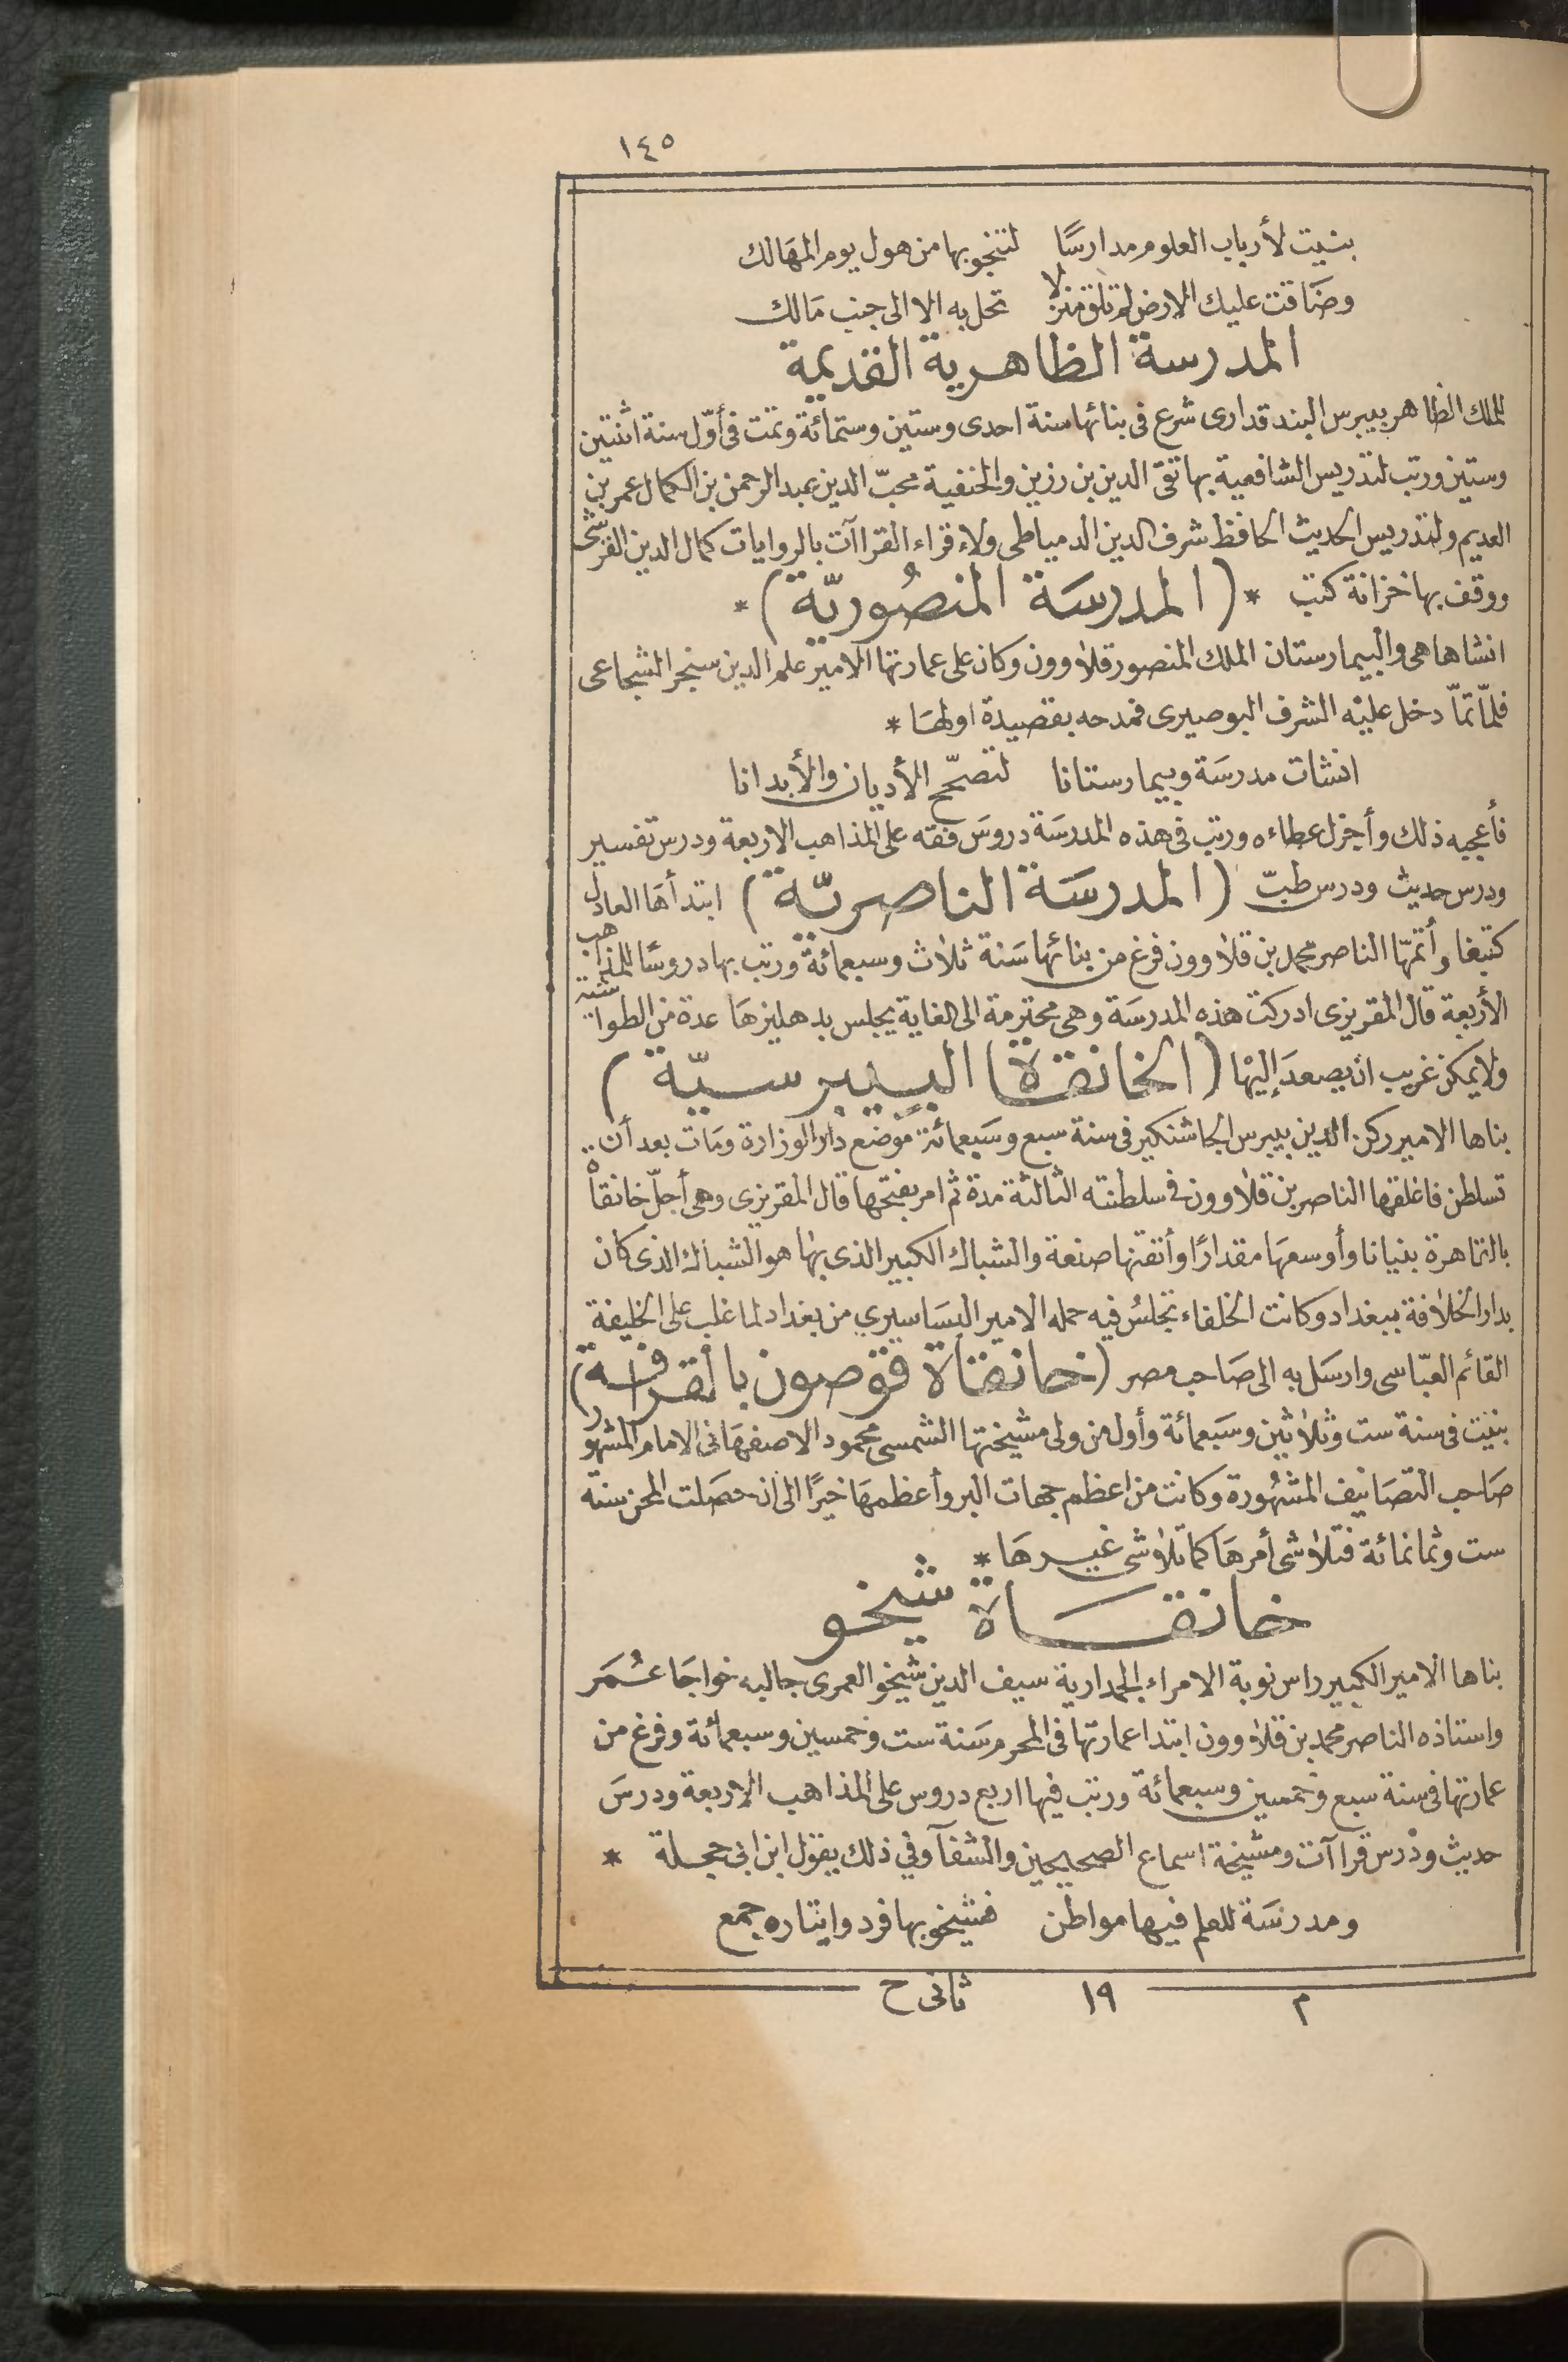 ١٤٥
بنيت لأرباب العلوم مدارسًا لتنجو بها من هول يوم المهَالك
وضَاقت عليك الارض لم تلق منزلا تحل به الا الى جنب مَالك
المدرسة الظاهرية القديمة
للملك الظاهر بيبرس البندقدارى شرع فى بنائها سنة احدى وستين وستمائة وتمت فى أوّل سنة اثنتين
وستين ورتب لتدريس الشافعية بها تقى الدين بن رزين والحنفية محبّ الدين عبد الرحمن بن الكمال عمر بن
العديم ولتدريس الحديث الحافظ شرف الدين الدمياطى ولاءقراء القراآت بالروايات كمال الدين القرشى
ووقف بها خزانة كتب * (المدرسَة المنصُوريّة) *
انشاها هى والبيمارستان الملك المنصور قلاوون وكان على عمارتها الامير علم الدين سنجر الشجاعى
فلمّا تمّا دخل عليْه الشرف البوصيرى فمدحه بقصيدة اولهَا *
انشات مدرسَة وبيمارستانا لتصحّح الأديان والأبدانا
فأعجبه ذلك وأجزل عطاءه ورتب فى هذه المدرسَة دروسَ فقه على المذاهب الاربعة ودرس تفسير
ودرس حديث ودرس طبّ (المدرسَة الناصريّة) ابتدأهَا العادل
كتبغا وأتمهّا الناصر محمد بن قلاوون فرغ من بنائها سَنة ثلاث وسبعمائة ورتب بها دروسًا للمذاهب
الأربعة قال المقريزى ادركت هذه المدرسَة وهى محترمة الى الغاية يجلس بدهليزهَا عدة من الطواشية
ولا يمكن غريب ان يصعدَ إليْها (الخانقاة البيبرسيّة)
بناها الامير ركن الدين بيبرس الجاشنكير فى سنة سبع وسَبعمائة موْضع دار الوزارة ومَات بعد أن ..
تسلطن فاغلقها الناصر بن قلاوون فى سلطنته الثالثة مدة ثم امر بفتحها قال المقريزى وهى أجلّ خانقاْه
بالقاهرة بنيانا وأوسعهَا مقدارًا وأتقنها صنعة والشباك الكبير الذى بها هو الشباك الذى كان
بدار الخلافة ببغداد وكانت الخلفاء تجلسُ فيه حمله الامير البسَاسيري من بغداد لما غلب على الخليفة
القائم العبّاسى وارسَل به الى صَاحب مصر (خانقاة قوْصون بالقرافة)
بنيْت فى سنة ست وثلاثين وسَبعمائة وأول من ولى مشيختها الشمسى محمود الاصفهَانى الامام المشهور
صَاحب التصَانيف المشهُورة وكانت من اعظم جهات البر وأعظمهَا خيرًا الى ان حصَلت المحن سنة
ست وثمانمائة فتلاشى أمرهَا كما تلاشى غيرهَا *
خانقَاة شيخو
بناها الامير الكبير راس نوبة الامراء الجمدارية سيف الدين شيخو العمرى جالبه خواجَا عُمَر
واستاذه الناصر محمد بن قلاوون ابتدا عمارتها فى المحرم سَنة ست وخمسين وسبعمائة وفرغ من
عمارتها فى سنة سبع وخمسين وسبعمائة ورتب فيها اربع دروس على المذاهب الاربعة ودرسَ
حديث ودْرس قراآت ومشيخة اسماع الصحيحين والشفآ وفي ذلك يقول ابن ابى حجلة *
ومدرسَة للعلم فيها مواطن فشيخو بها فرد وايتاره جمع
م ١٩ ثانى ح